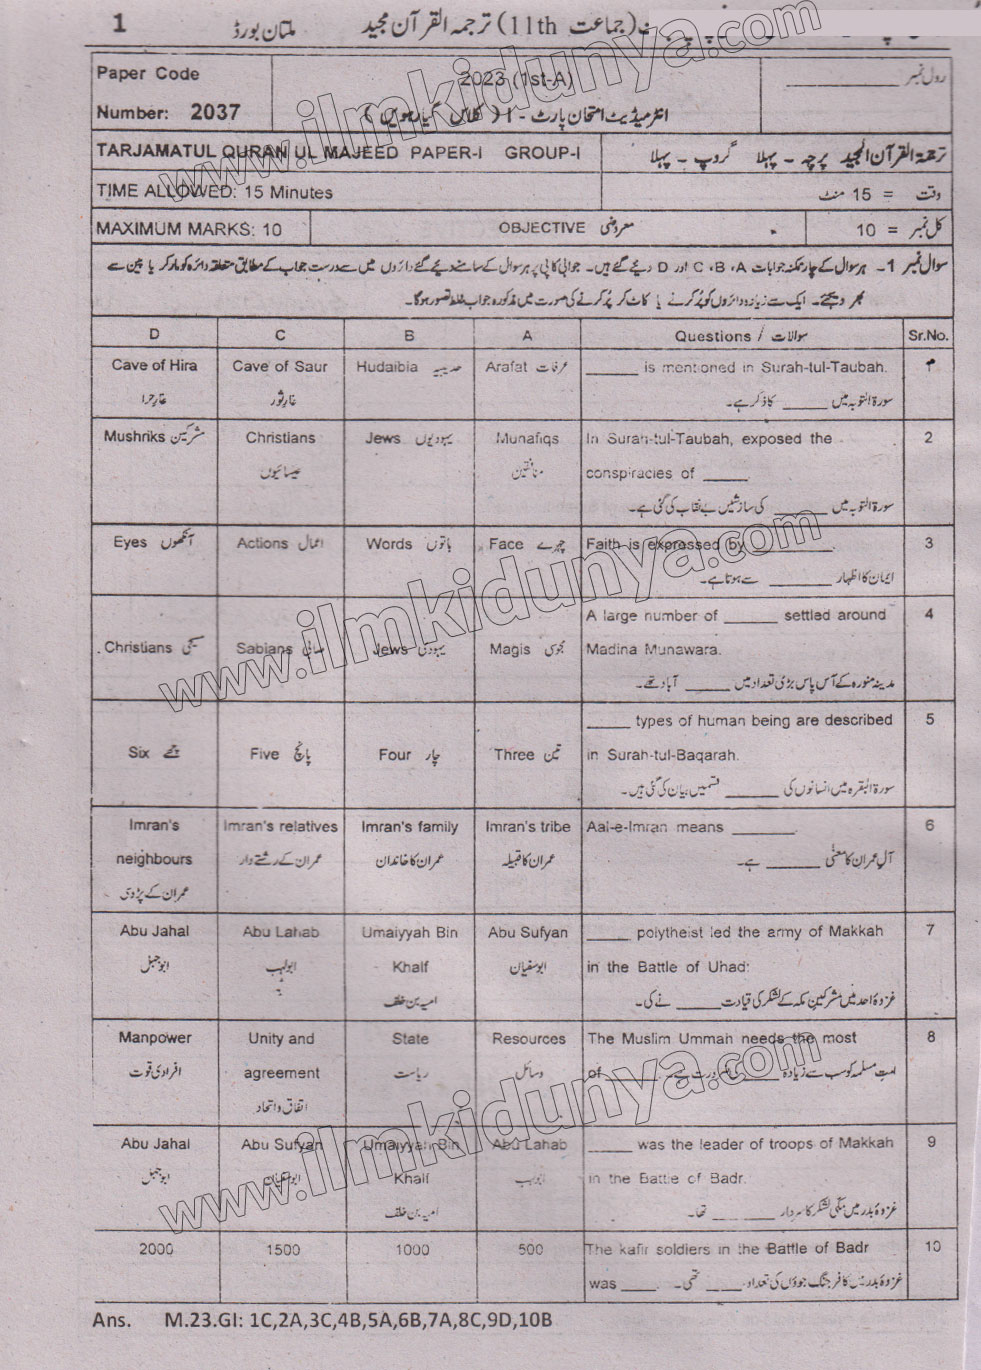 1 ملتان بورڈ ترجمہ القرآن مجید (11th جماعت)
Paper Code
Number: 2037
2023 (1st-A)
انٹرمیڈیٹ امتحان پارٹ - I (کلاس گیارہویں)
رول نمبر
TARJAMATUL QURAN UL MAJEED PAPER-I GROUP-I
ترجمۃ القرآن المجید پرچہ - پہلا گروپ - پہلا
TIME ALLOWED: 15 Minutes
وقت = 15 منٹ
MAXIMUM MARKS: 10
OBJECTIVE معروضی
کل نمبر = 10
سوال نمبر 1- ہر سوال کے چار ممکنہ جوابات A، B، C اور D دیے گئے ہیں۔ جوابی کاپی پر ہر سوال کے سامنے دیے گئے دائروں میں سے درست جواب کے مطابق متعلقہ دائرہ کو مارکر یا پین سے
بھر دیجئے۔ ایک سے زیادہ دائروں کو پُر کرنے یا کاٹ کر پُر کرنے کی صورت میں مذکورہ جواب غلط تصور ہوگا۔
D C B A Questions / سوالات Sr.No.
Cave of Hira Cave of Saur Hudaibia حدیبیہ Arafat عرفات ______ is mentioned in Surah-tul-Taubah.
غارِ حرا غارِ ثور سورۃ التوبہ میں ______ کا ذکر ہے۔
Mushriks مشرکین Christians Jews یہودیوں Munafiqs In Surah-tul-Taubah, exposed the 2
عیسائیوں منافقین conspiracies of _____.
سورۃ التوبہ میں ______ کی سازشیں بے نقاب کی گئی ہے۔
Eyes آنکھوں Actions اعمال Words باتوں Face چہرے Faith is expressed by __________. 3
ایمان کا اظہار _______ سے ہوتا ہے۔
A large number of ______ settled around 4
Christians مسیحی Sabians صابی Jews یہودی Magis مجوسی Madina Munawara.
مدینہ منورہ کے آس پاس بڑی تعداد میں _____ آباد تھے۔
_____ types of human being are described 5
Six چھے Five پانچ Four چار Three تین in Surah-tul-Baqarah.
سورۃ البقرہ میں انسانوں کی ______ قسمیں بیان کی گئی ہیں۔
Imran's Imran's relatives Imran's family Imran's tribe Aal-e-Imran means _______. 6
neighbours عمران کے رشتے دار عمران کا خاندان عمران کا قبیلہ آلِ عمران کا معنیٰ ______ ہے۔
عمران کے پڑوسی
Abu Jahal Abu Lahab Umaiyyah Bin Abu Sufyan _____ polytheist led the army of Makkah 7
ابو جہل ابولہب Khalf ابوسفیان in the Battle of Uhad:
امیہ بن خلف غزوۂ احد میں مشرکینِ مکہ کے لشکر کی قیادت _____ نے کی۔
Manpower Unity and State Resources The Muslim Ummah needs the most 8
افرادی قوت agreement ریاست وسائل of ______. امتِ مسلمہ کو سب سے زیادہ ____ کی ضرورت ہے۔
اتفاق و اتحاد
Abu Jahal Abu Sufyan Umaiyyah Bin Abu Lahab _____ was the leader of troops of Makkah 9
ابو جہل ابوسفیان Khalf ابولہب in the Battle of Badr.
امیہ بن خلف غزوۂ بدر میں مکی لشکر کا سردار _______ تھا۔
2000 1500 1000 500 The kafir soldiers in the Battle of Badr 10
was ____. غزوۂ بدر میں کافر جنگ جوؤں کی تعداد ____ تھی۔
Ans. M.23.GI: 1C,2A,3C,4B,5A,6B,7A,8C,9D,10B
www.ilmkidunya.com
www.ilmkidunya.com
www.ilmkidunya.com